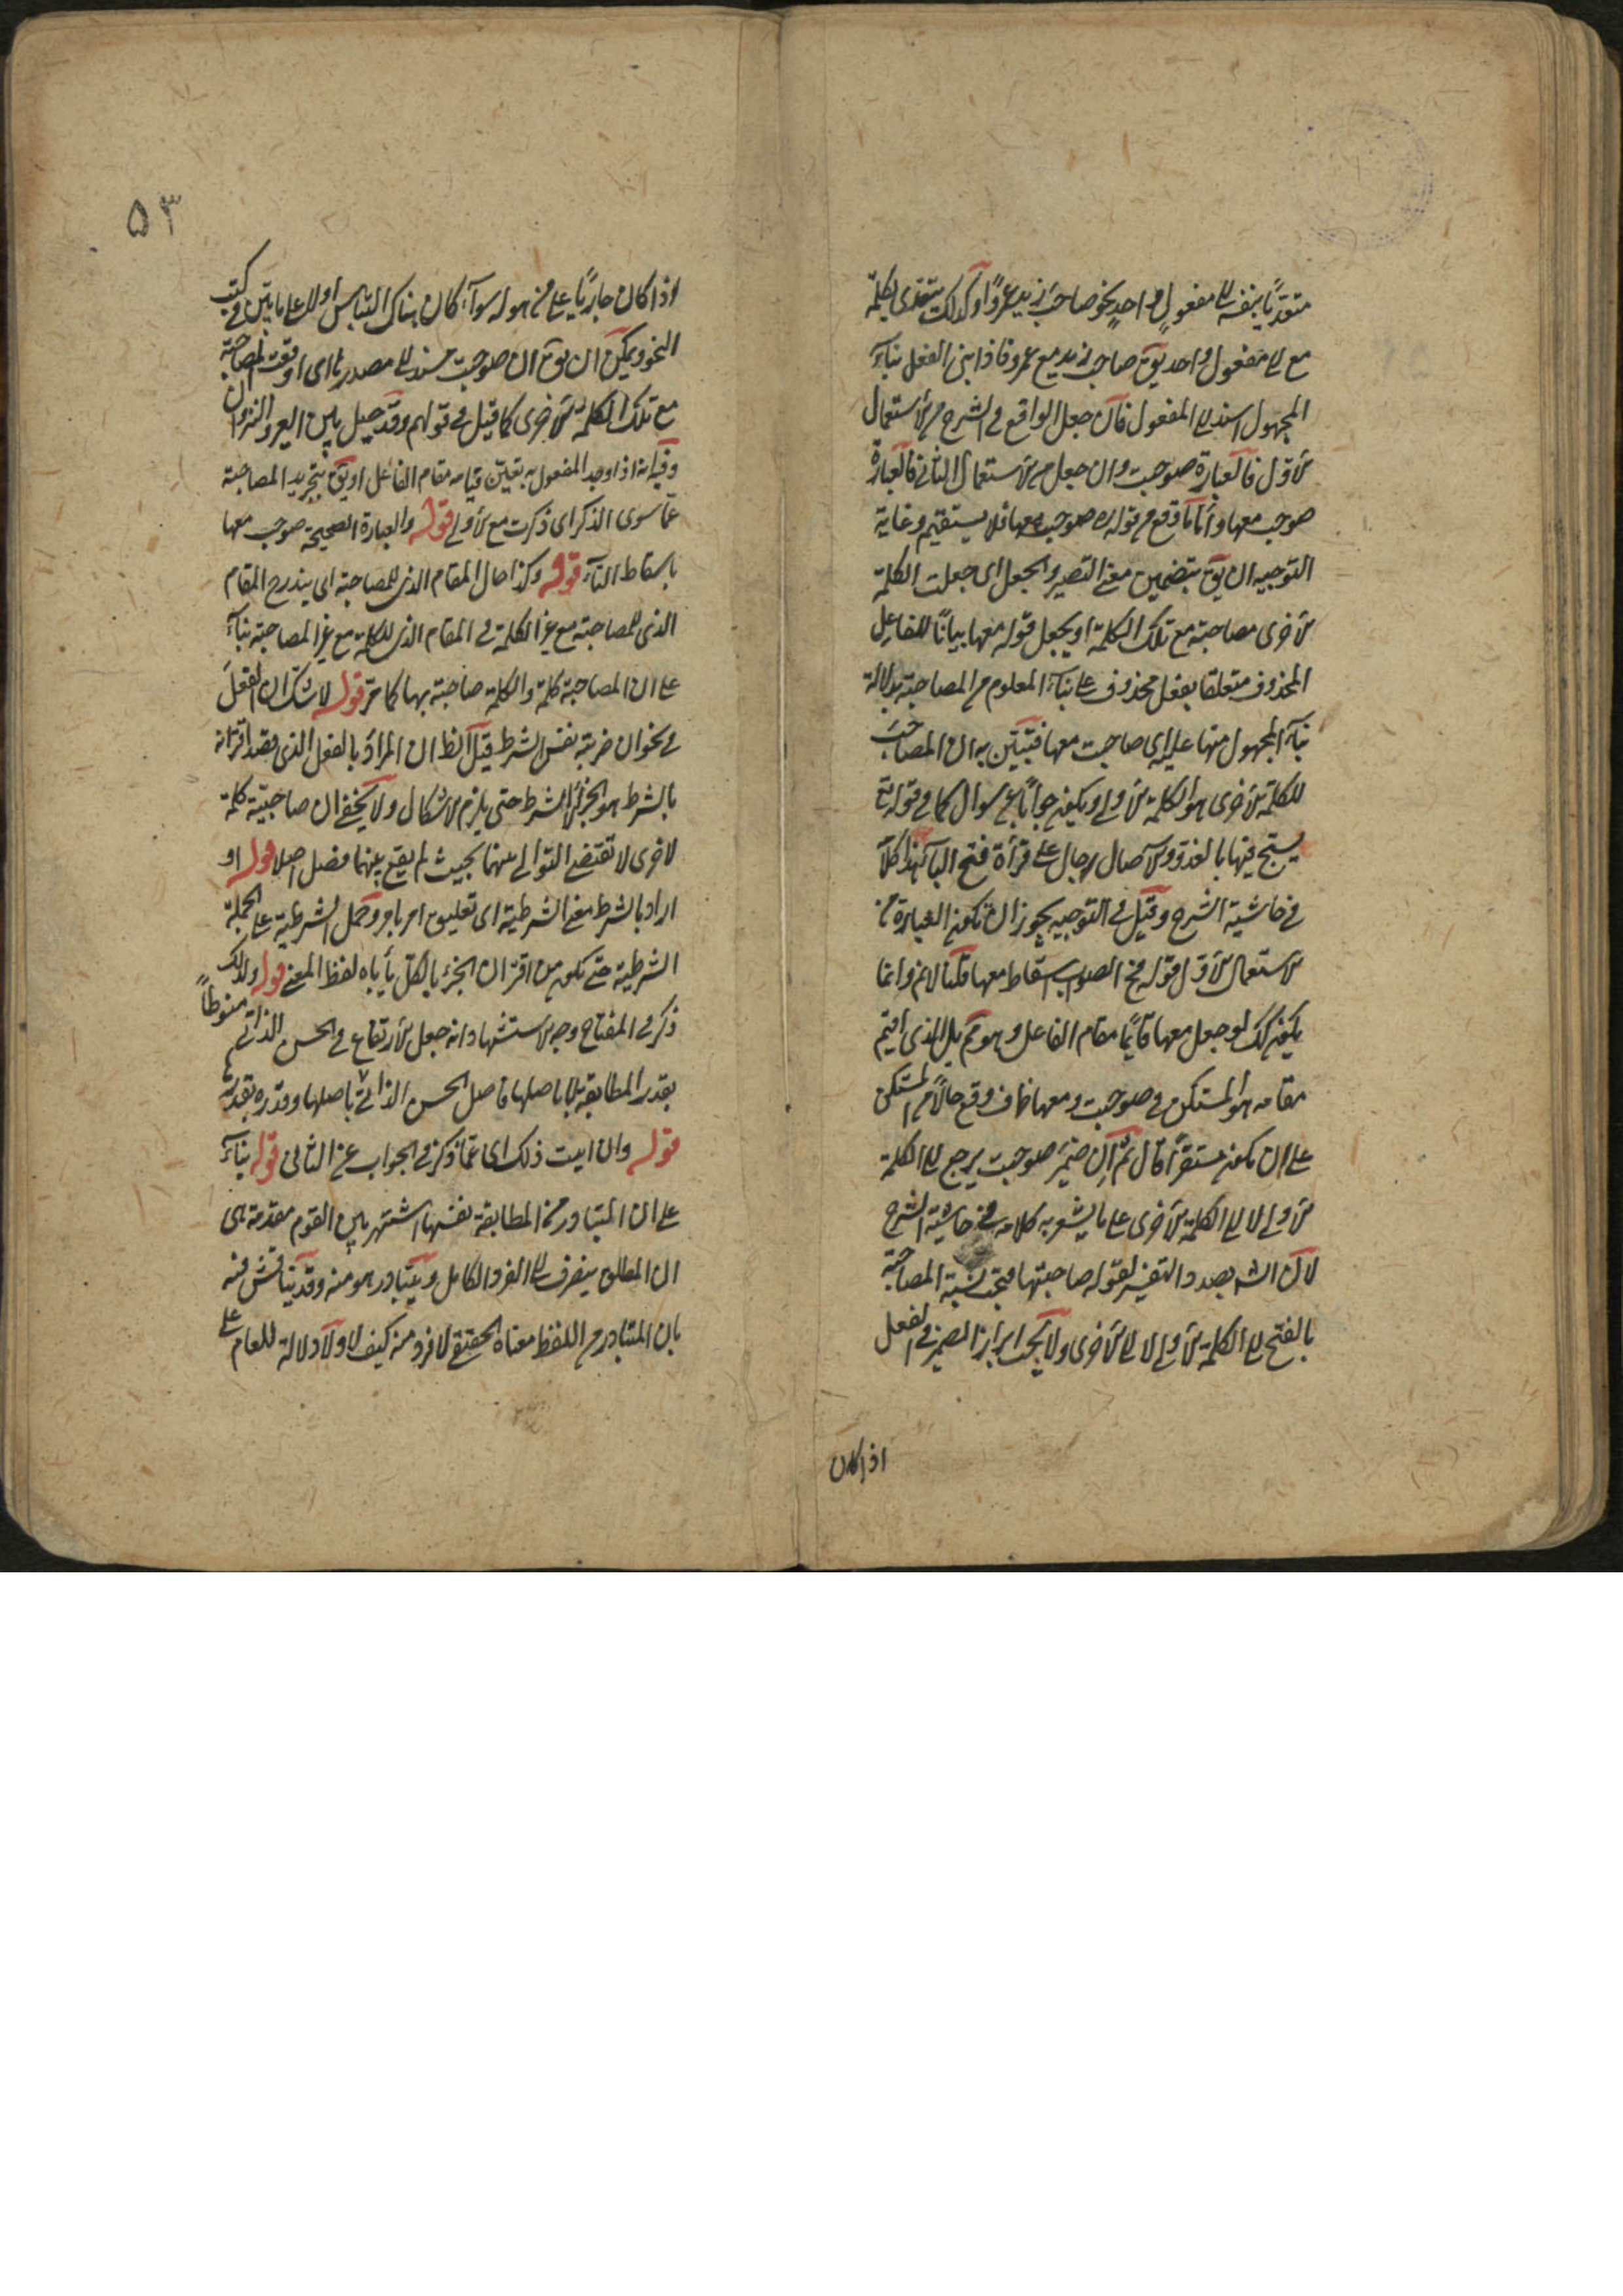 متعديًا بنفسه الى مفعول واحد نحو صاحب زيد عمروًا وكذلك يتعدى بكلمة
مع الى مفعول واحد يق صاحب زيد مع عمرو فاذا بنى الفعل بناء
المجهول اسند الى المفعول فان جعل الواقع فى الشرح من الاستعمال
الاول فالعبارة صوحبت وان جعل من الاستعمال الثانى فالعبارة
صوحب معها واما ما وقع من قوله صوحبت معها فلا يستقيم وغاية
التوجيه ان يق بتضمين معنى التصيير والجعل اى جعلت الكلمة
الاخرى مصاحبة مع تلك الكلمة او يجعل قوله معها بيانًا للفاعل
المحذوف متعلقا بفعل محذوف على بناء المعلوم من المصاحبة بدلالة
بناء المجهول منها عليه اى صاحبت معها فتبين به ان المصاحب
للكلمة الاخرى هو الكلمة الاولى ويكون جوابًا عن سوال كما فى قوله تع
يسبح فيها بالغدو والاصال رجال على قرأة فتح الباء هذا كلامه
فى حاشية الشرح وقيل فى التوجيه يجوز ان تكون العبارة من
الاستعمال الاول قوله فح الصواب اسقاط معها قلنا لانم وانما
يكون كك لو جعل معها قايمًا مقام الفاعل وهو مم بل الذى اقيم
مقامه هو المستكن فى صوحبت ومعها ظرف وقع حالًا من المستكن
على ان يكون مستقرًا قال ثم ان ضمير صوحبت يرجع الى الكلمة
الاولى لا الى الكلمة الاخرى على ما يشعر به كلامه فى حاشية الشرح
لان الش بصدد التفسير لقوله صاحبتها فيجب نسبة المصاحبة
بالفتح الى الكلمة الاولى لا الى الاخرى ولا يجب ابراز الضمير فى الفعل
اذا كان
٥٣
اذا كان جاريًا على من هو له سوآء كان هناك التباس اولا على ما بين فى كتب
النحو ويمكن ان يق ان صوحبت مسند الى مصدرها اى اوقعت المصاحبة
مع تلك الكلمة الاخرى كما قيل فى قولهم وقد حيل بين العير والنزوان
وفيه انه اذا وجد المفعول به تعين قيامه مقام الفاعل او يق بتجريد المصاحبة
عما سوى الذكر اى ذكرت مع الاولى قوله والعبارة الصحيحة صوحب معها
باسقاط التاء قوله وكذا حال المقام الذى للمصاحبة اى يندرج المقام
الذى للمصاحبة مع غير الكلمة فى المقام الذى للكلمة مع غير المصاحبة بناء
على ان المصاحبة كلمة والكلمة صاحبة بها كما مر قوله لا شك ان الفعل
فى نحو ان ضربته نفس الشرط قيل الظ ان المراد بالفعل الذى قصد اقترانه
بالشرط هو الجزاء لا الشرط حتى يلزم الاشكال ولا يخفى ان صاحبية كلمة
لاخرى لا تقتضى التوالى بينهما بحيث لم يقع بينهما فصل اصلا قوله او
اراد بالشرط معنى الشرطية اى تعليق امر بامر وحمل الشرطية على الجملة
الشرطية حتى يكون من اقتران الجزء بالكل يأباه لفظ المعنى قوله ولذلك
ذكر فى المفتاح وجه الاستشهاد انه جعل الارتفاع فى الحسن الذاتى منوطًا
بقدر المطابقة لا باصلها فاصل الحسن الذاتى باصلها وقدره بقدرها
قوله وان ابيت ذلك اى عما ذكر فى الجواب عن الثانى قوله بناء
على ان المتبادر من المطابقة نفسها اشتهر بين القوم مقدمة هى
ان المطلق ينصرف الى الفرد الكامل ويتبادر هو منه وقد يناقش فيه
بان المتبادر من اللفظ معناه الحقيقى لا فرد منه كيف لا ولا دلالة للعام على